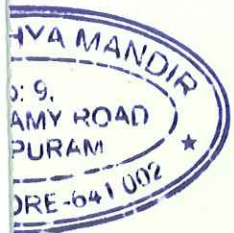 HVA MANDIR
O: 9,
AMY ROAD
PURAM
ORE-641 002